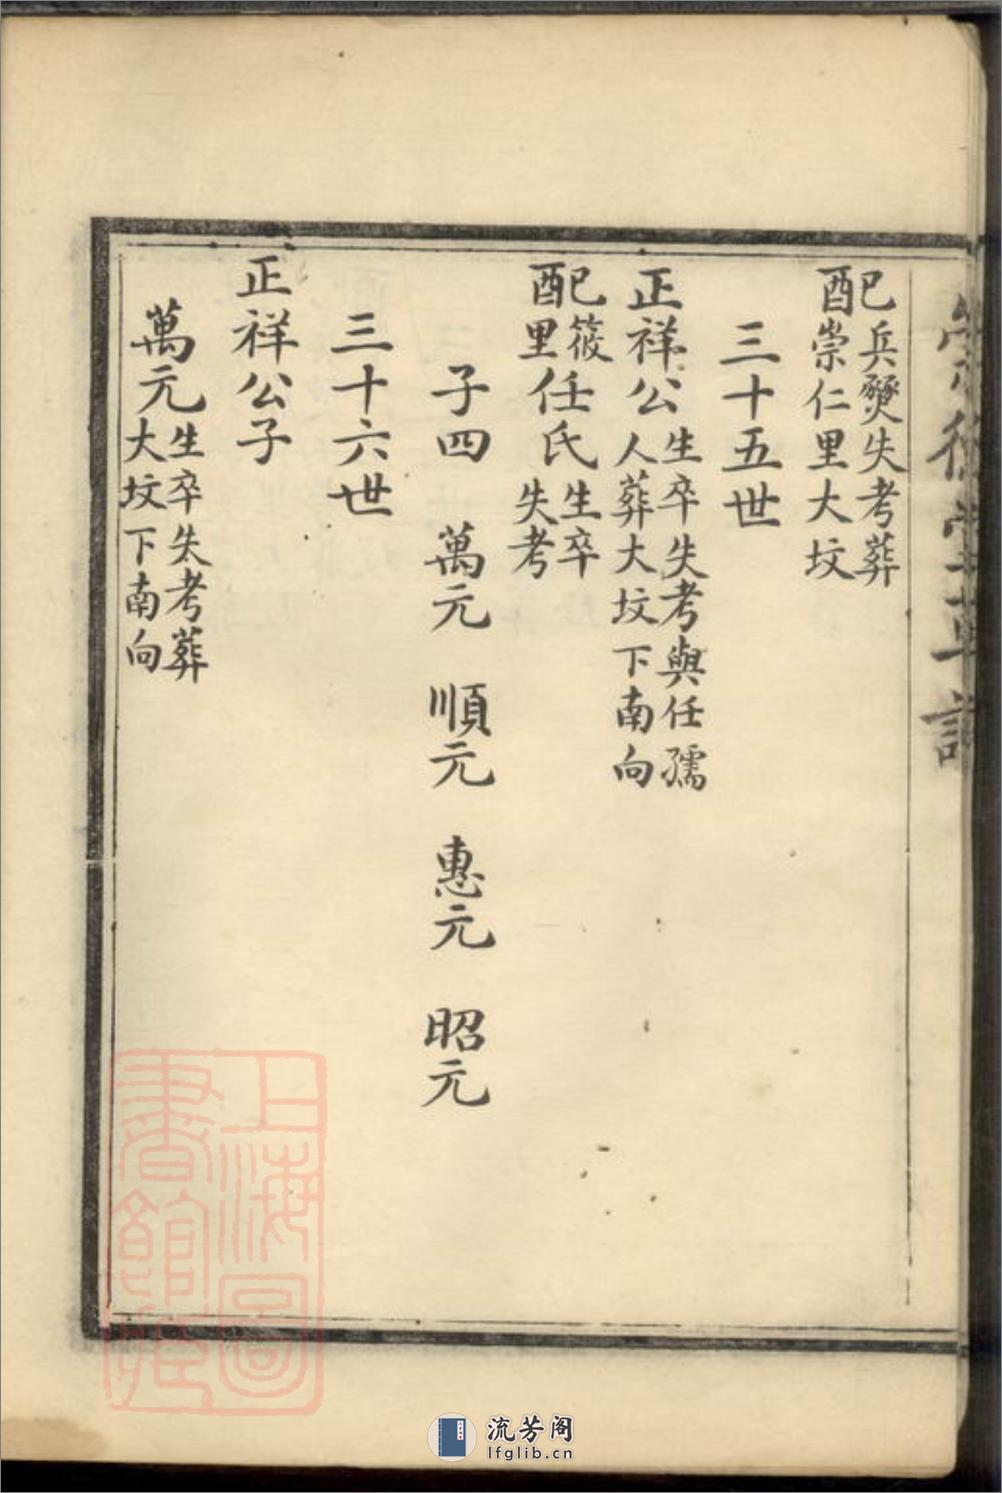 配兵燹失考葬
崇仁里大坟
三十五世
正祥公生卒失考與任孺
人葬大坟下南向
配筱里任氏生卒
失考
子四 萬元 順元 惠元 昭元
三十六世
正祥公子
萬元生卒失考葬
大坟下南向
上海圖
書館藏
流芳阁
lfglib.cn